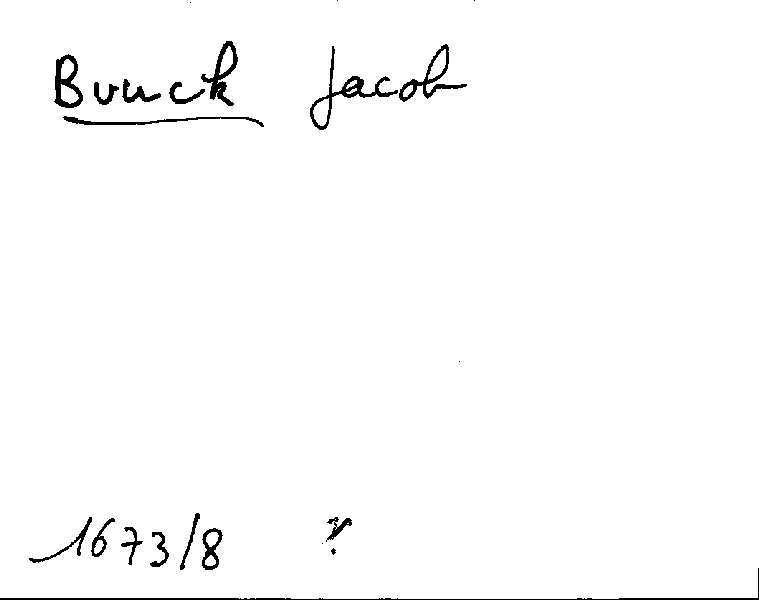 Buuck Jacob
1673/8 ?